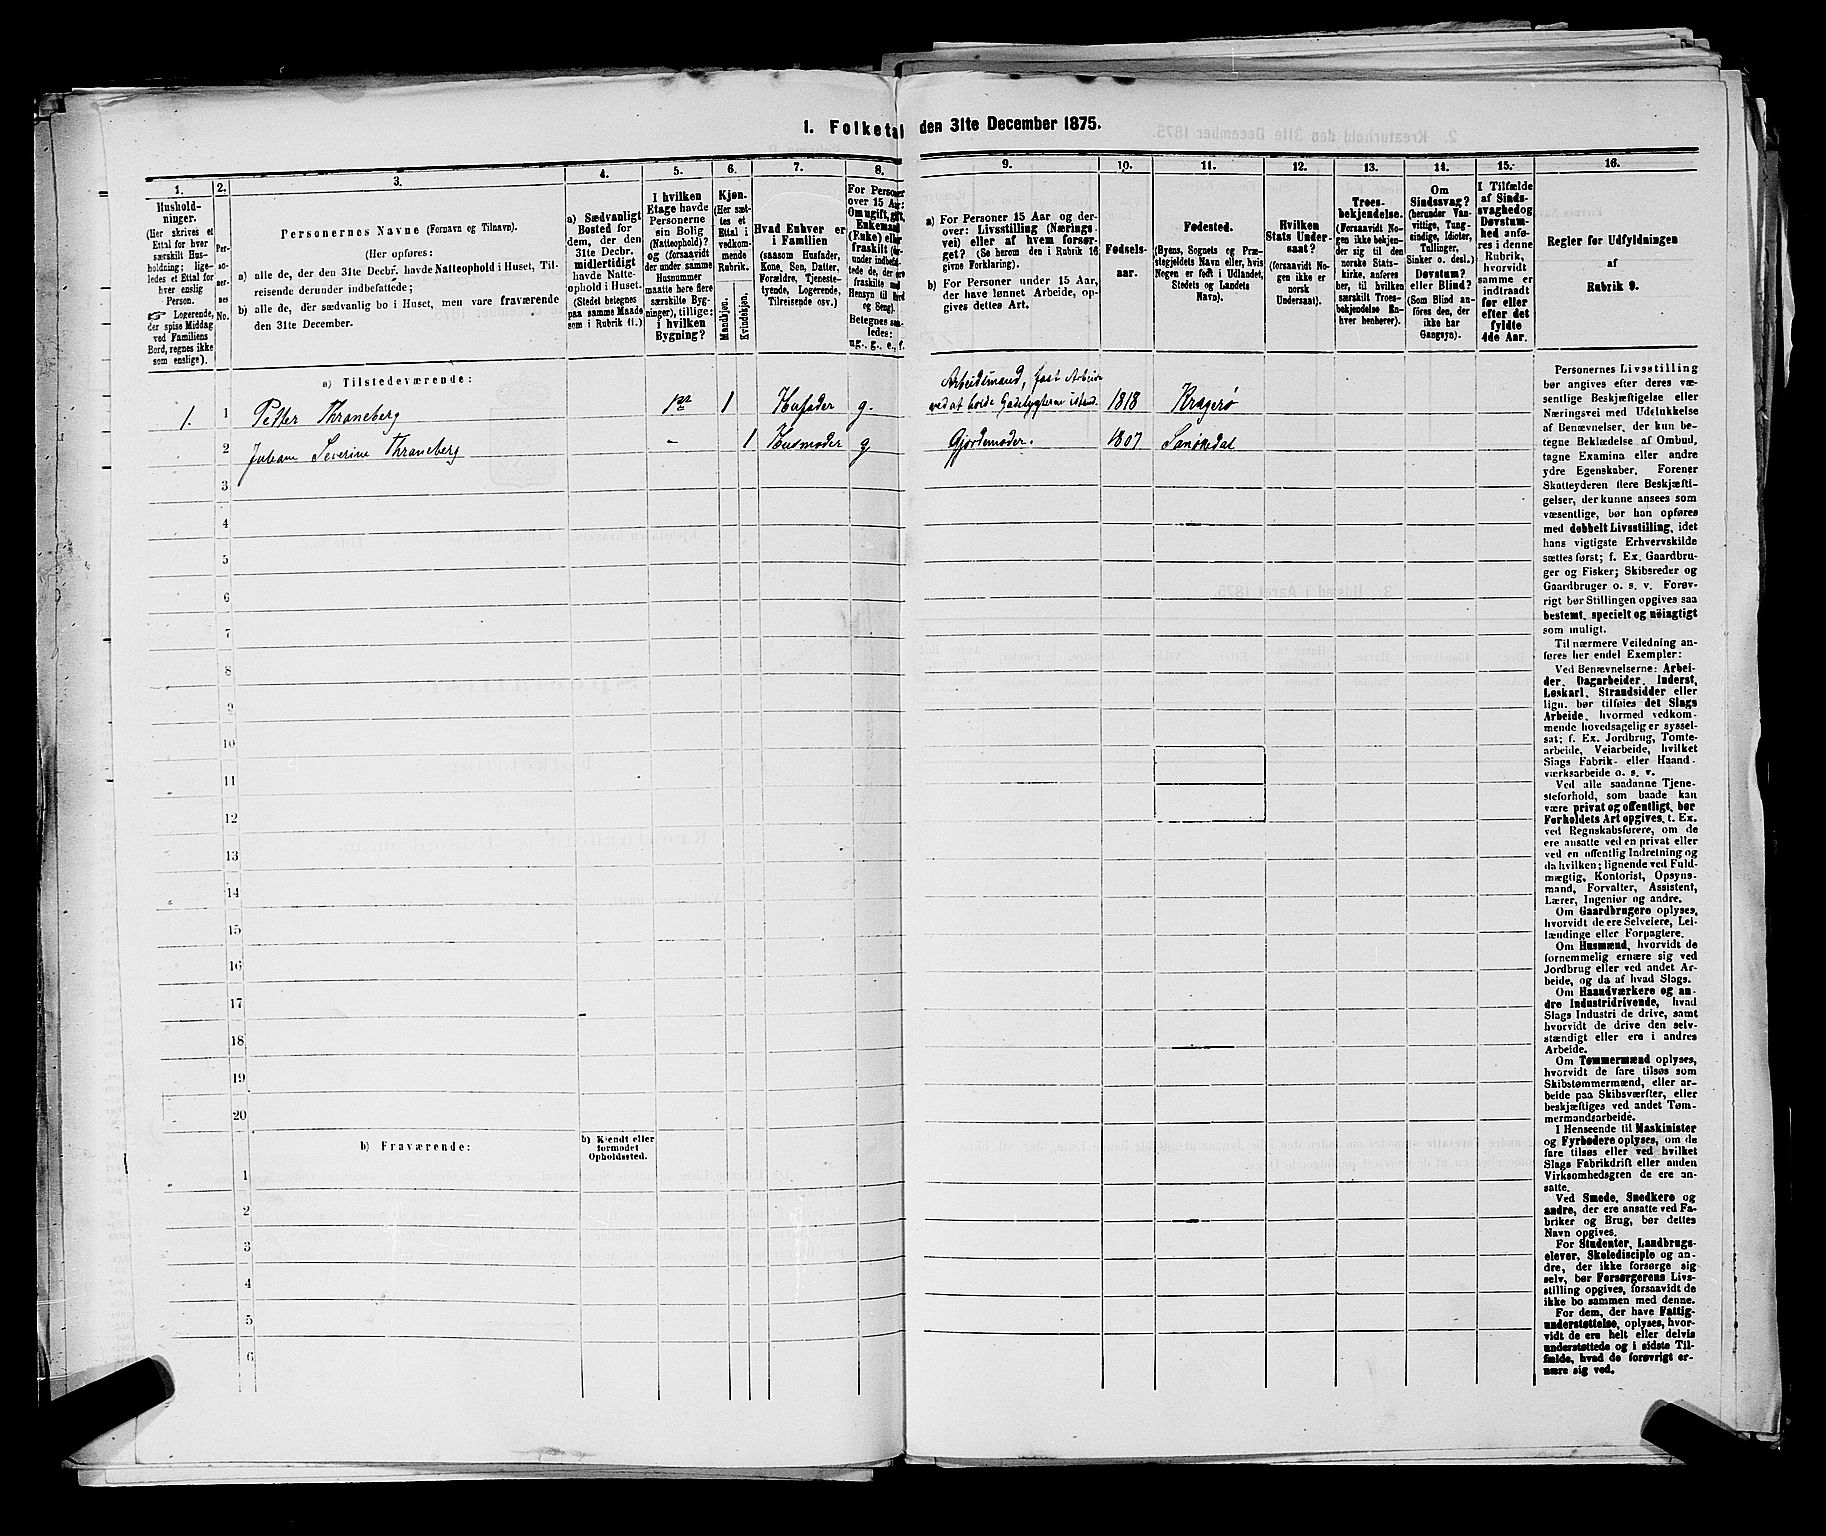 1. Folketal den 31te December 1875.
1.
2.
3.
4.
5.
6.
7.
8.
9.
10.
11.
12.
13.
14.
15.
16.
Husholdninger.
(Her skrives et
Ettal for hver
særskilt Husholdning;
ligeledes et Ettal for
hver enslig
Person.
☞ Logerende,
der spise Middag
ved Familiens
Bord, regnes ikke
som enslige).
Personernes No.
Personernes Navne (Fornavn og Tilnavn).
(Her opføres:
a) alle de, der den 31te Decbr. havde Natteophold i Huset, Tilreisende derunder indbefattede;
b) alle de, der sædvanlig bo i Huset, men vare fraværende
den 31te December.
a) Sædvanligt
Bosted for
dem, der den
31te Decbr.
midlertidigt
havde Natteophold
i Huset.
(Stedet betegnes
paa samme Maade
som i Rubrik 11.)
I hvilken
Etage havde
Personerne
sin Bolig
(Natteophold)?
og (forsaavidt
der under samme
Husnummer
maatte høre flere
særskilte Bygninger),
tillige:
i hvilken
Bygning?
Kjøn.
(Her sættes
et
Ettal i
vedkommende
Rubrik.
Mandkjøn.
Kvindekjøn.
Hvad Enhver er
i Familien
(saasom Husfader,
Kone, Søn, Datter,
Forældre, Tjenestetyende,
Logerende,
Tilreisende osv.)
For Personer
over 15 Aar:
Om ugift, gift,
Enkemand
(Enke) eller
fraskilt
Betegnes saaledes:
ug., g., e., f.
a) For Personer 15 Aar og derover:
Livsstilling (Næringsvei)
eller af hvem forsørget?
(Se herom den i Rubrik 16
givne Forklaring).
b) For Personer under 15 Aar,
der have lønnet Arbeide, opgives
dettes Art.
Fødselsaar.
Fødested.
(Byens, Sognets og Præstegjeldets
Navn eller, hvis
Nogen er født i Udlandet,
Stedets og Landets
Navn).
Hvilken
Stats Undersaat?
(forsaavidt Nogen
ikke er
norsk
Undersaat).
Troesbekjendelse.
(Forsaavidt Nogen
ikke bekjender
sig til den
norske Statskirke,
anføres
her, til hvilken
særskilt Troesbekjendelse
Enhver
henhører).
Om
Sindssvag?
(herunder Vanvittige,
Tungsindige,
Idioter,
Tullinger,
Sinker o. desl.)
Døvstum?
eller Blind?
(Som Blind anføres
den, der
ikke har
Gangsyn).
I Tilfælde
af Sindssvaghed
og
Døvstumhed
anføres
i denne
Rubrik,
hvorvidt
samme er
indtraadt
før eller
efter det
fyldte
4de Aar.
Regler for Udfyldningen
af
Rubrik 9.
a) Tilstedeværende:
1. 1 Petter Thraneberg 1ste 1 Husfader g. Arbeidsmand, fast Arbeide
ved at holde Gadelygterne istand. 1818 Kragerø
2 Juliane Severine Thraneberg - 1 Husmoder g Gjordemoder. 1807 Sanøkedal
3
4
5
6
7
8
9
10
11
12
13
14
15
16
17
18
19
20
b) Fraværende:
b) Kjendt eller
formodet
Opholdssted.
1
2
3
4
5
6
Personernes Livsstilling
bør angives efter deres væsentlige
Beskjæftigelse eller
Næringsvei med Udelukkelse
af Benævnelser, der kun betegne
Beklædelse af Ombud,
tagne Examina eller andre
ydre Egenskaber. Forener
Skatteyderen flere Beskjæftigelser,
der kunne ansees som
væsentlige, bør han opføres
med dobbelt Livsstilling, idet
hans vigtigste Erhvervskilde
sættes først; f. Ex. Gaardbruger
og Fisker; Skibsreder og
Gaardbruger o. s. v. Forøvrigt
bør Stillingen opgives saa
bestemt, specielt og nøiagtigt
som muligt.
Til nærmere Veiledning anføres
her endel Exempler:
Ved Benævnelserne: Arbeider,
Dagarbeider, Inderst,
Løskarl, Strandsidder eller
lign. bør tilføies det Slags
Arbeide, hvormed vedkommende
hovedsagelig er sysselsat;
f. Ex. Jordbrug, Tomtearbeide,
Veiarbeide, hvilket
Slags Fabrik- eller Haandværksarbeide
o. s. v.
Ved alle saadanne Tjenesteforhold,
som baade kan
være privat og offentligt, bør
Forholdets Art opgives, t. Ex.
ved Regnskabsførere, om de
ere ansatte ved en privat eller
ved en offentlig Indretning og
da hvilken; lignende ved Fuldmægtig,
Kontorist, Opsynsmand,
Forvalter, Assistent,
Lærer, Ingeniør og andre.
Om Gaardbrugere oplyses,
hvorvidt de ere Selveiere, Leilændinge
eller Forpagtere.
Om Husmænd, hvorvidt de
fornemmelig ernære sig ved
Jordbrug eller ved andet Arbeide,
og da af hvad Slags.
Om Haandværkere og andre
Industridrivende, hvad
Slags Industri de drive, samt
hvorvidt de drive den selvstændigt
eller ere i andres
Arbeide.
Om Tømmermænd oplyses,
hvorvidt de fare tilsøs som
Skibstømmermænd, eller arbeide
paa Skibsværfter, eller
beskjæftiges ved andet Tømmermandsarbeide.
I Henseende til Maskinister
og Fyrbødere oplyses, om de
fare tilsøs eller ved hvilket
Slags Fabrikdrift eller anden
Virksomhedsgren de ere ansatte.
Ved Smede, Snedkere og
andre, der ere ansatte ved Fabriker
og Brug, bør dettes
Navn opgives.
For Studenter, Landbrugselever,
Skoledisciple og andre,
der ikke forsørge sig
selv, bør Forsørgerens Livsstilling
opgives, forsaavidt de
ikke bo sammen med denne.
For dem, der have Fattigunderstøttelse,
oplyses, hvorvidt
de ere helt eller delvis
understøttede og i sidste Tilfælde,
hvad de forøvrigt ernære
sig ved.